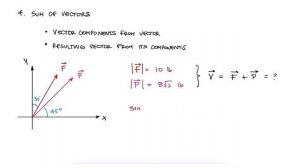 4. SUM OF VECTORS
• VECTOR COMPONENTS FROM VECTOR
• RESULTING VECTOR FROM ITS COMPONENTS
Y
F⃗
P⃗
30°
45°
X
|F⃗| = 10 lb
|P⃗| = 8√2 lb
} V⃗ = F⃗ + P⃗ = ?
sin